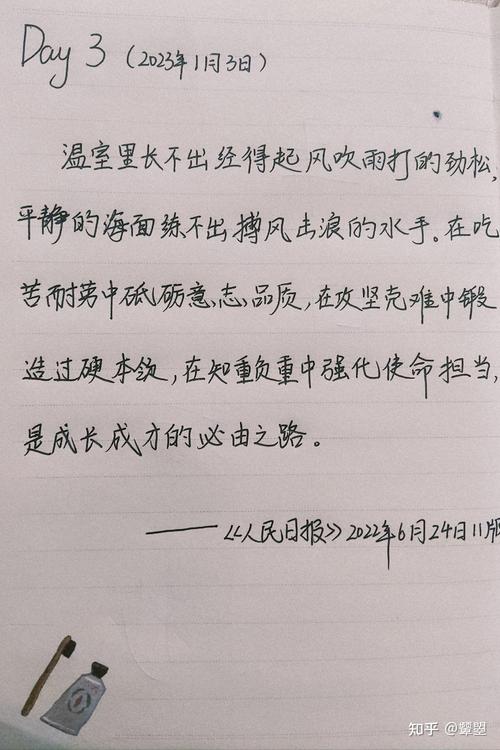 Day 3（2023年1月3日）
温室里长不出经得起风吹雨打的劲松，
平静的海面练不出搏风击浪的水手。在吃
苦耐劳中砥砺意志品质，在攻坚克难中锻
造过硬本领，在知重负重中强化使命担当，
是成长成才的必由之路。
——《人民日报》2022年6月24日11版
知乎 @顰曌